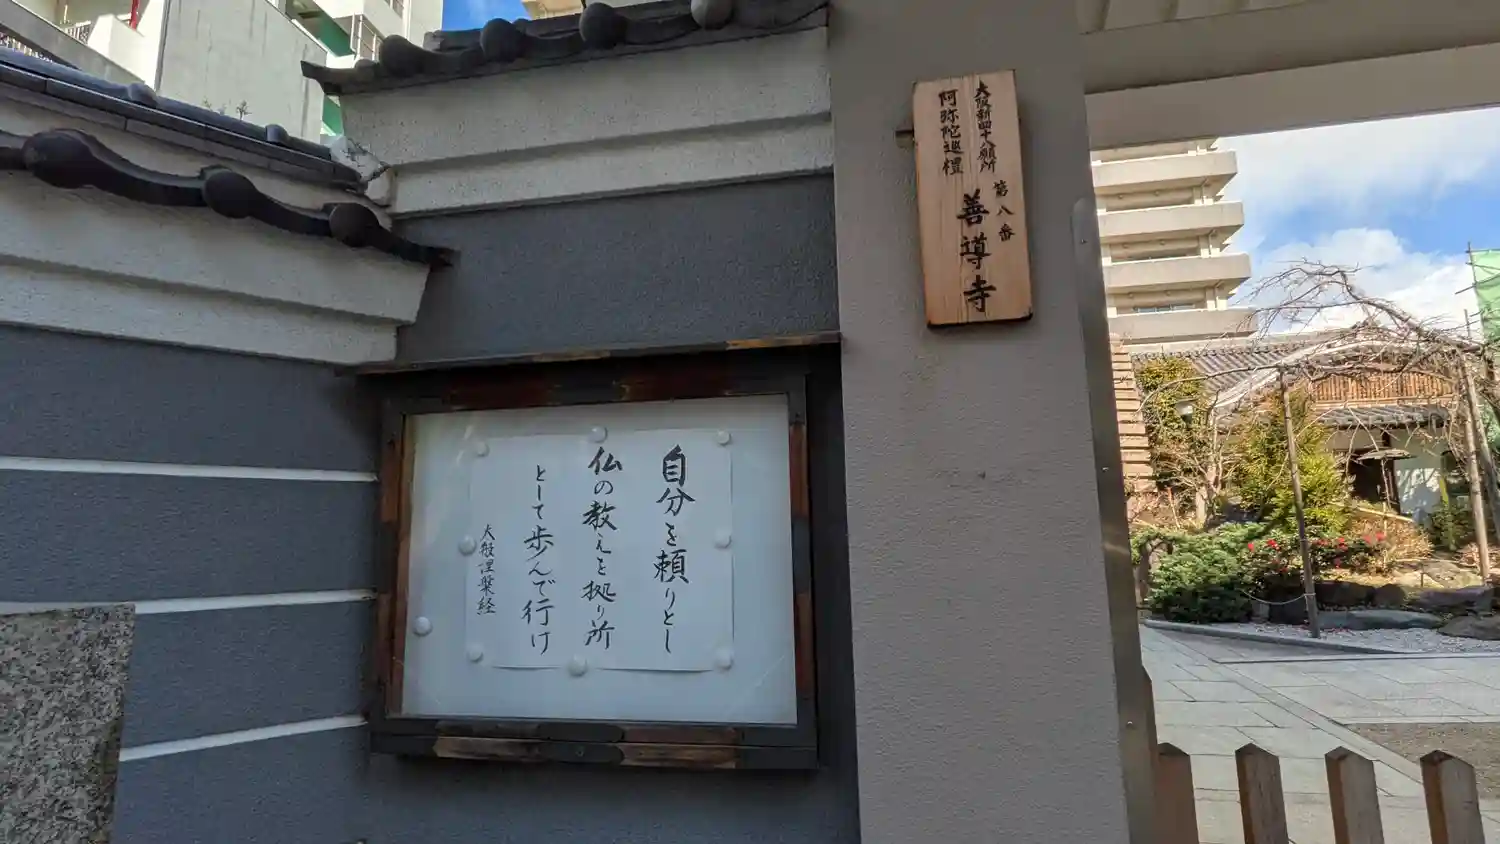 大阪新四十八願所
阿弥陀巡禮
第八番
善導寺
自分を頼りとし
仏の教えを拠り所
として歩んで行け
大般涅槃経